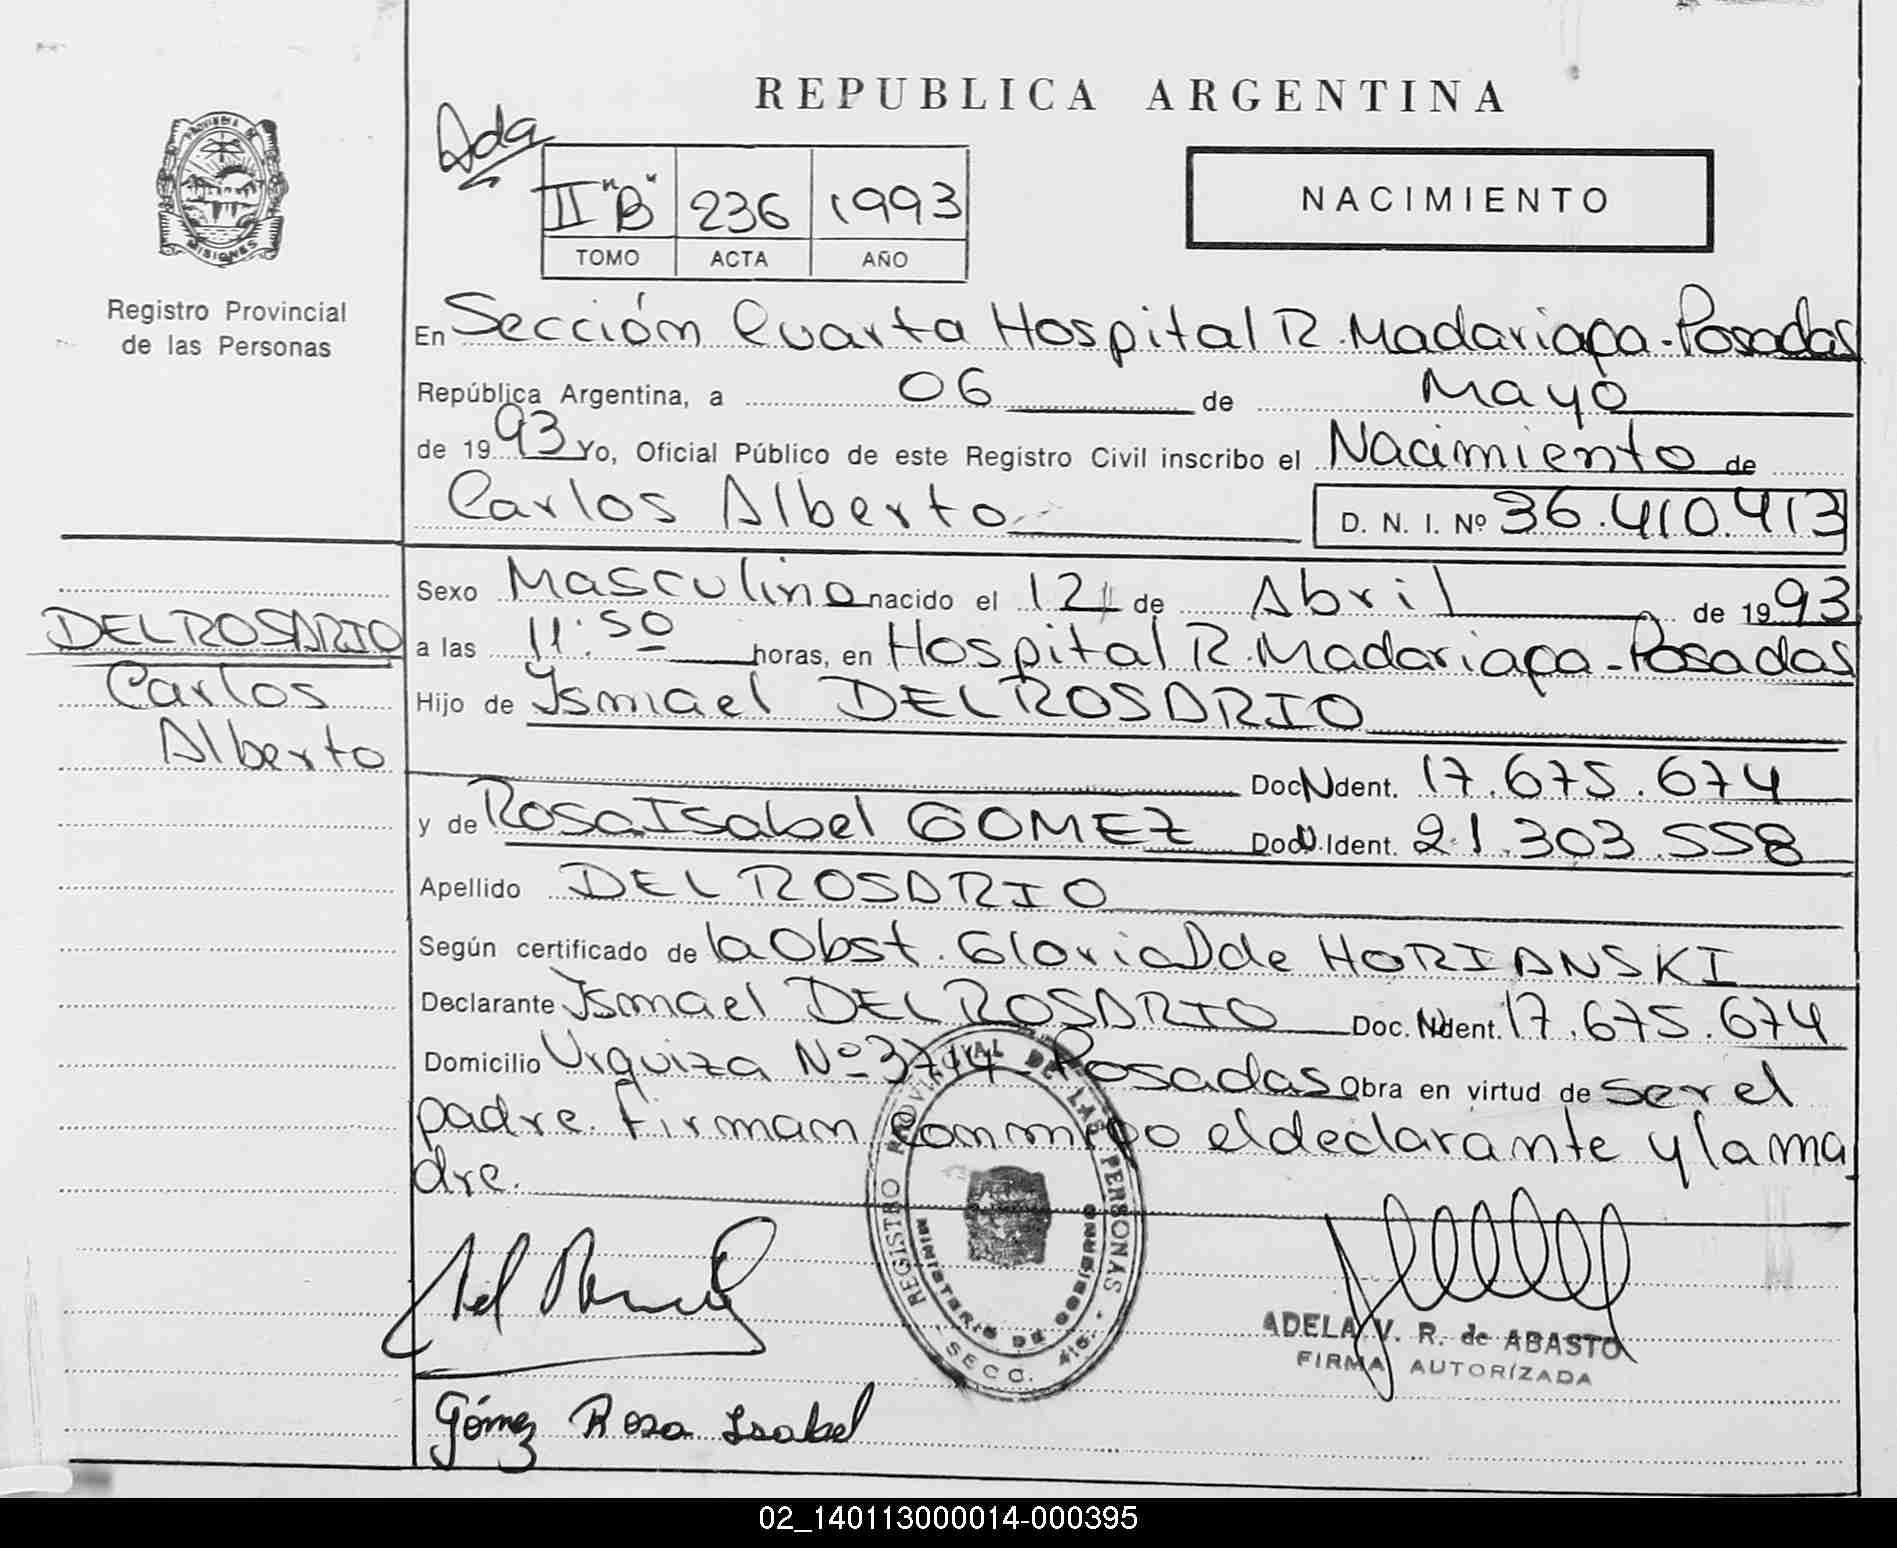 REPUBLICA ARGENTINA
Ada
II "B" 236 1993
TOMO ACTA AÑO
NACIMIENTO
PROVINCIA DE MISIONES
Registro Provincial
de las Personas
En Sección Cuarta Hospital R. Madariaga - Posadas
República Argentina, a 06 de Mayo
de 1993 Yo, Oficial Público de este Registro Civil inscribo el Nacimiento de
Carlos Alberto D. N. I. Nº 36.410.413
DEL ROSARIO
Carlos
Alberto
Sexo Masculino nacido el 12 de Abril de 1993
a las 11:50 horas, en Hospital R. Madariaga - Posadas
Hijo de Ismael DEL ROSARIO
Doc N Ident. 17.675.674
y de Rosa Isabel GOMEZ Doc N. Ident. 21.303.558
Apellido DEL ROSARIO
Según certificado de la Obst. Gloria D de HORIANSKI
Declarante Ismael DEL ROSARIO Doc. N Ident. 17.675.674
Domicilio Urquiza Nº 3744 - Posadas Obra en virtud de ser el
padre. Firman conmigo el declarante y la ma
dre.
REGISTRO PROVINCIAL DE LAS PERSONAS
MINISTERIO DE GOBIERNO
SECC. 4ta.
ADELA V. R. de ABASTO
FIRMA AUTORIZADA
Gómez Rosa Isabel
02_140113000014-000395